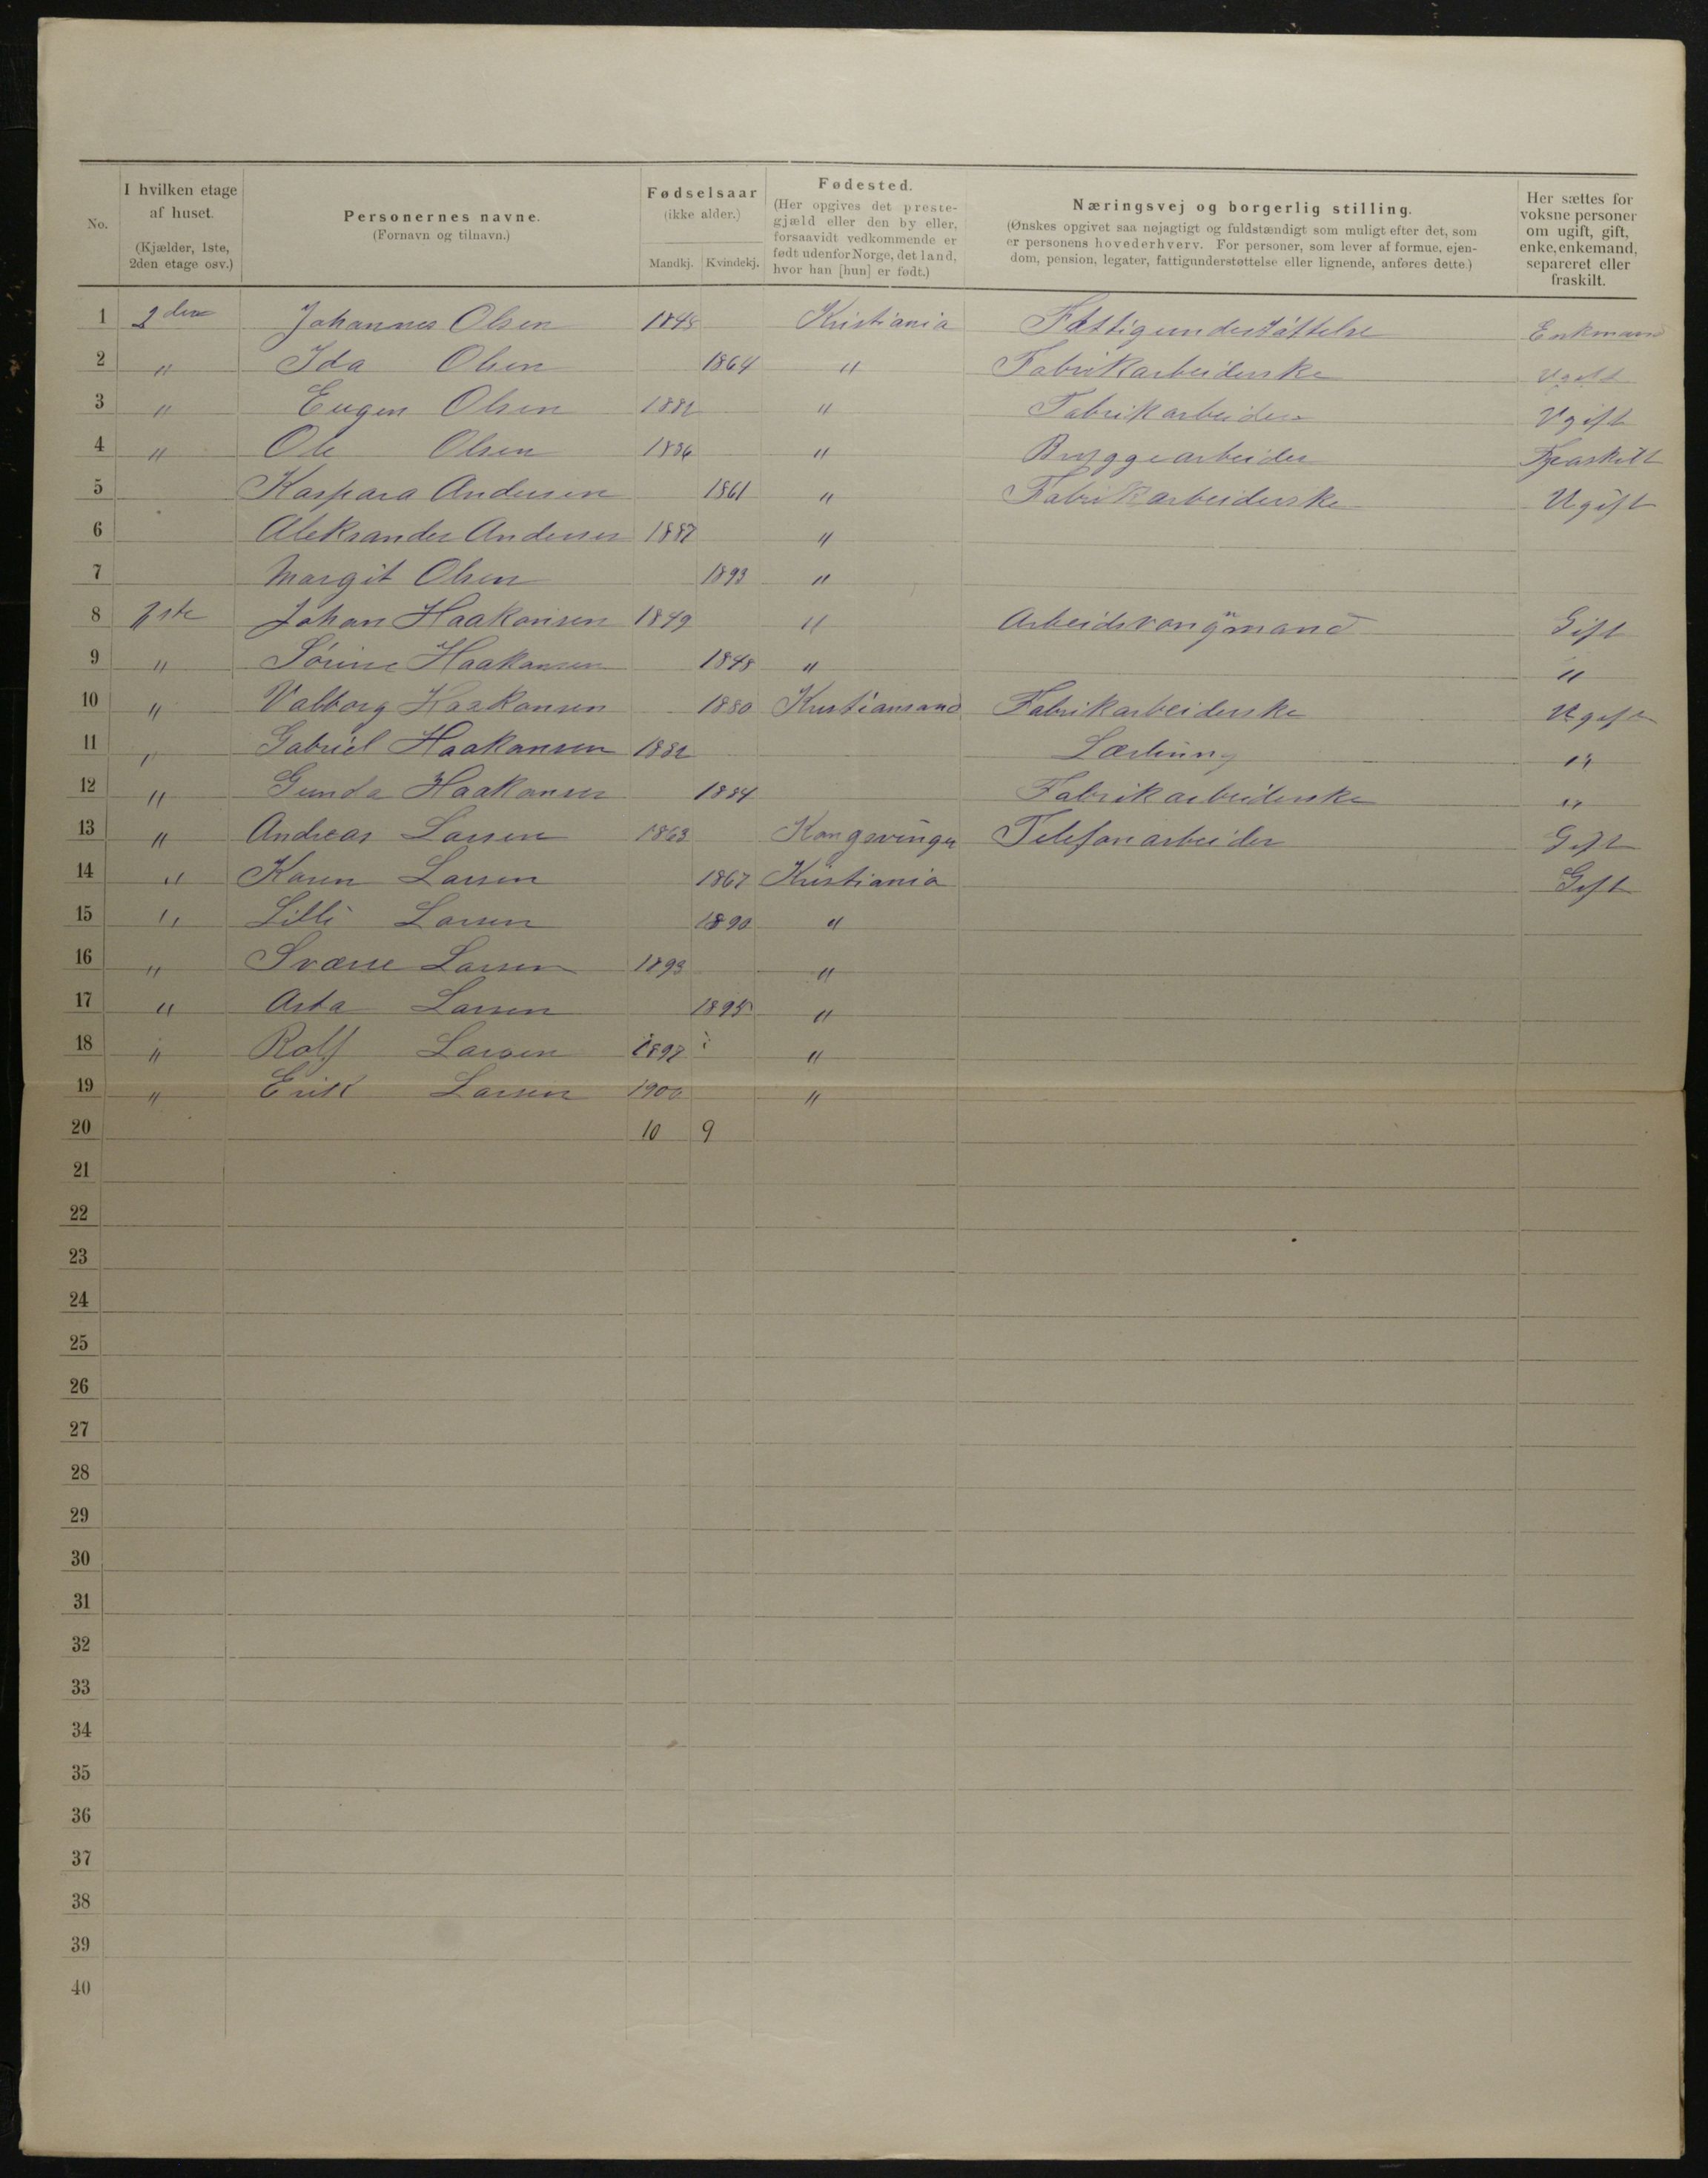 No.
I hvilken etage af huset.
(Kjælder, 1ste, 2den etage osv.)
Personernes navne.
(Fornavn og tilnavn.)
Fødselsaar
(ikke alder.)
Mandkj. Kvindekj.
Fødested.
(Her opgives det preste-
gjæld eller den by eller,
forsaavidt vedkommende er
født udenfor Norge, det land,
hvor han [hun] er født.)
Næringsvej og borgerlig stilling.
(Ønskes opgivet saa nøjagtigt og fuldstændigt som muligt efter det, som
er personens hovederhverv. For personer, som lever af formue, ejen-
dom, pension, legater, fattigunderstøttelse eller lignende, anføres dette.)
Her sættes for
voksne personer
om ugift, gift,
enke, enkemand,
separeret eller
fraskilt.
1 2den Johannes Olsen Kristiania Fattigunderstøttelse Enkmand
2 " Ida Olsen 1864 " Fabrikarbeiderske Ugift
3 " Eugen Olsen 1882 " Fabrikarbeider Ugift
4 " Ole Olsen 1836 " Bryggearbeider Fraskilt
5 Kaspara Andersen 1861 " Fabrikarbeiderske Ugift
6 Aleksander Andersen 1887 "
7 Margit Olsen 1893 "
8 1ste Johan Haakonsen 1849 " Gift
9 " Sørine Haakansen 1848 " "
10 " Valborg Haakonsen 1880 Kristiansand Fabrikarbeiderske Ugift
11 " Gabriel Haakansen 1882 Lærling "
12 " Gunda Haakansen 1884 Fabrikarbeiderske "
13 " Andreas Larsen 1863 Kongsvinger Telefonarbeider Gift
14 " Karen Larsen 1867 Kristiania Gift
15 " Lilli Larsen 1890 "
16 " Sværre Larsen 1893 "
17 " Asta Larsen 1895 "
18 " Rolf Larsen 1897 "
19 " Erik Larsen 1900 "
20 10 9
21
22
23
24
25
26
27
28
29
30
31
32
33
34
35
36
37
38
39
40